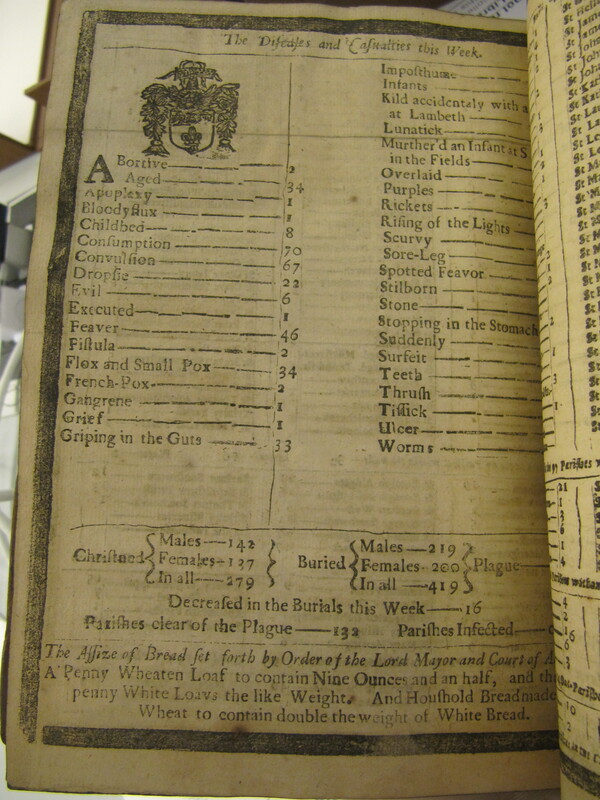 The Diſeaſes and Caſualties this Week.
Abortive 2
Aged 34
Apoplexy 1
Bloodyflux 1
Childbed 8
Conſumption 70
Convulſion 67
Dropſie 22
Evil 6
Executed 1
Feaver 46
Fiſtula 2
Flox and Small Pox 34
French-Pox 2
Gangrene 1
Grief 1
Griping in the Guts 33
Impoſthume
Infants
Kild accidentaly with a
at Lambeth
Lunatick
Murther'd an Infant at S
in the Fields
Overlaid
Purples
Rickets
Riſing of the Lights
Scurvy
Sore-Leg
Spotted Feavor
Stilborn
Stone
Stopping in the Stomach
Suddenly
Surfeit
Teeth
Thruſh
Tiſſick
Ulcer
Worms
Chriſtned { Males 142 Females 137 In all 279 }
Buried { Males 219 Females 200 In all 419 } Plague
Decreaſed in the Burials this Week 16
Pariſhes clear of the Plague 132 Pariſhes Infected
The Aſſize of Bread ſet forth by Order of the Lord Mayor and Court of A
A Penny Wheaten Loaf to contain Nine Ounces and an half, and th
penny White Loavs the like Weight. And Houſhold Bread made
Wheat to contain double the weight of White Bread.